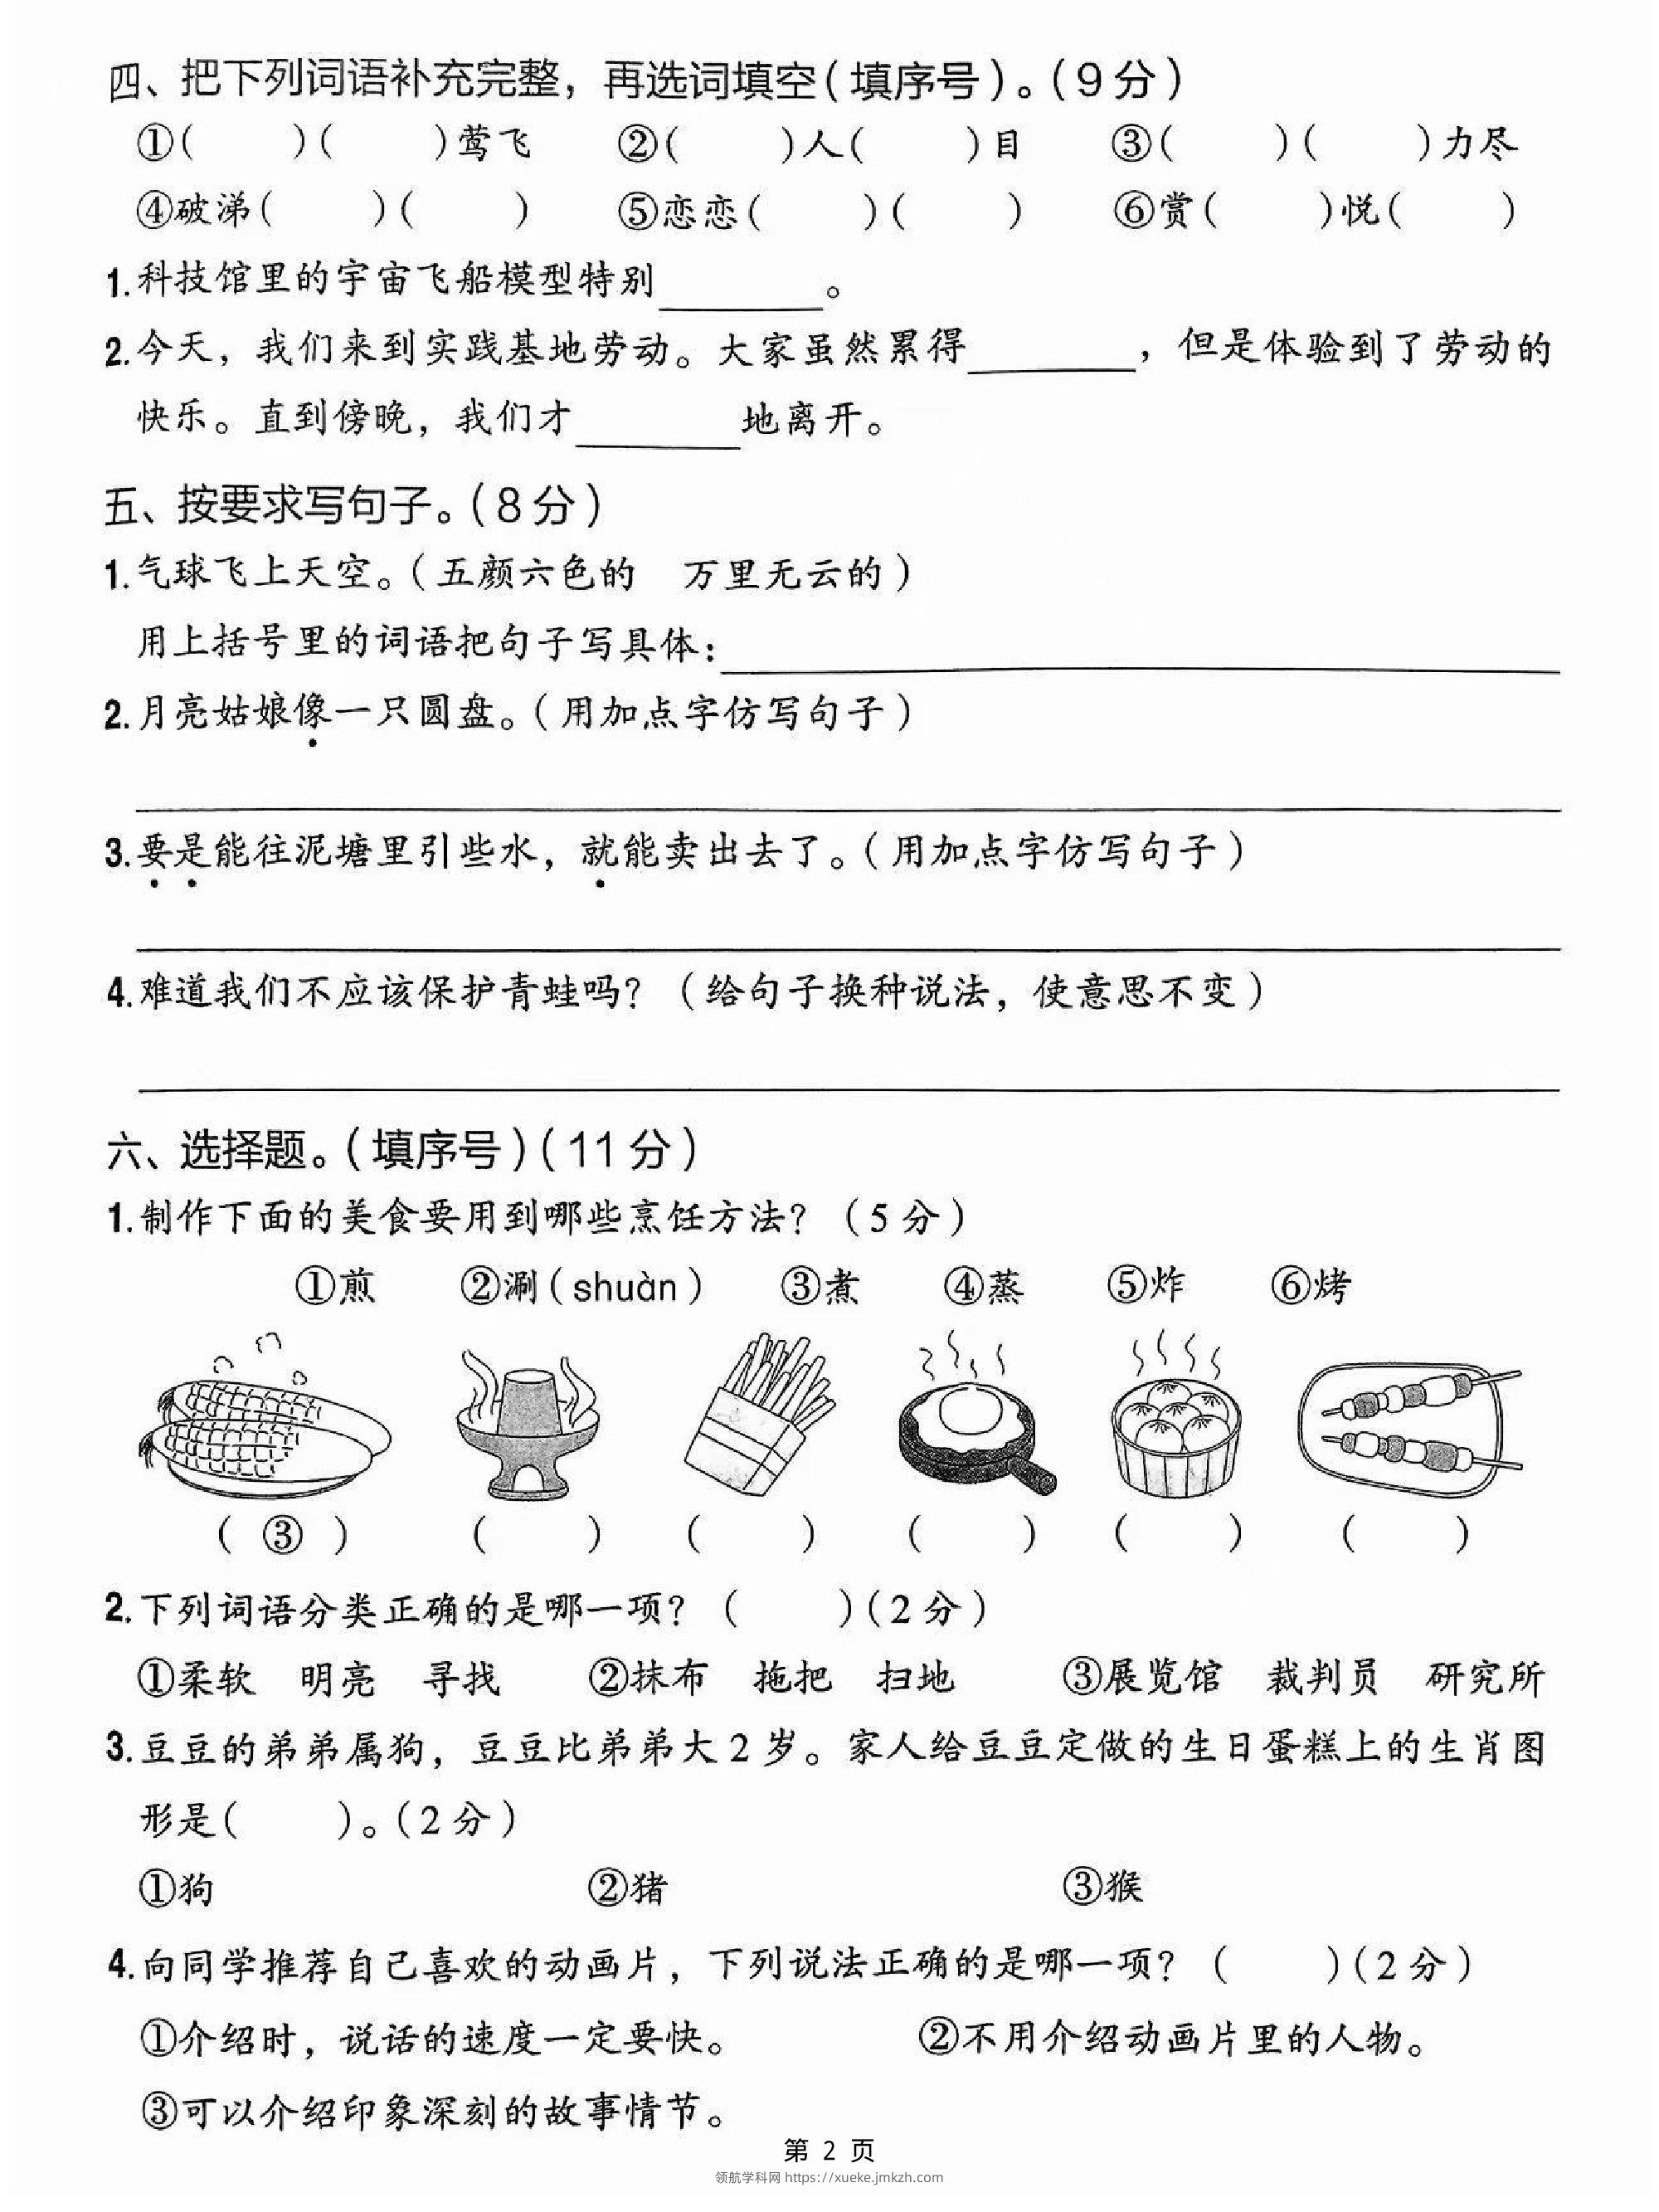 四、把下列词语补充完整，再选词填空(填序号)。(9分)
①(　　)(　　)莺飞　②(　　)人(　　)目　③(　　)(　　)力尽
④破涕(　　)(　　)　⑤恋恋(　　)(　　)　⑥赏(　　)悦(　　)
1.科技馆里的宇宙飞船模型特别________。
2.今天，我们来到实践基地劳动。大家虽然累得________，但是体验到了劳动的
快乐。直到傍晚，我们才________地离开。
五、按要求写句子。(8分)
1.气球飞上天空。(五颜六色的　万里无云的)
用上括号里的词语把句子写具体:________
2.月亮姑娘像一只圆盘。(用加点字仿写句子)
3.要是能往泥塘里引些水，就能卖出去了。(用加点字仿写句子)
4.难道我们不应该保护青蛙吗？(给句子换种说法，使意思不变)
六、选择题。(填序号)(11分)
1.制作下面的美食要用到哪些烹饪方法？(5分)
①煎　②涮(shuàn)　③煮　④蒸　⑤炸　⑥烤
(③)　(　　)　(　　)　(　　)　(　　)　(　　)
2.下列词语分类正确的是哪一项？(　　)(2分)
①柔软　明亮　寻找　②抹布　拖把　扫地　③展览馆　裁判员　研究所
3.豆豆的弟弟属狗，豆豆比弟弟大2岁。家人给豆豆定做的生日蛋糕上的生肖图
形是(　　)。(2分)
①狗　②猪　③猴
4.向同学推荐自己喜欢的动画片，下列说法正确的是哪一项？(　　)(2分)
①介绍时，说话的速度一定要快。　②不用介绍动画片里的人物。
③可以介绍印象深刻的故事情节。
第 2 页
领航学科网 https://xueke.jmkzh.com